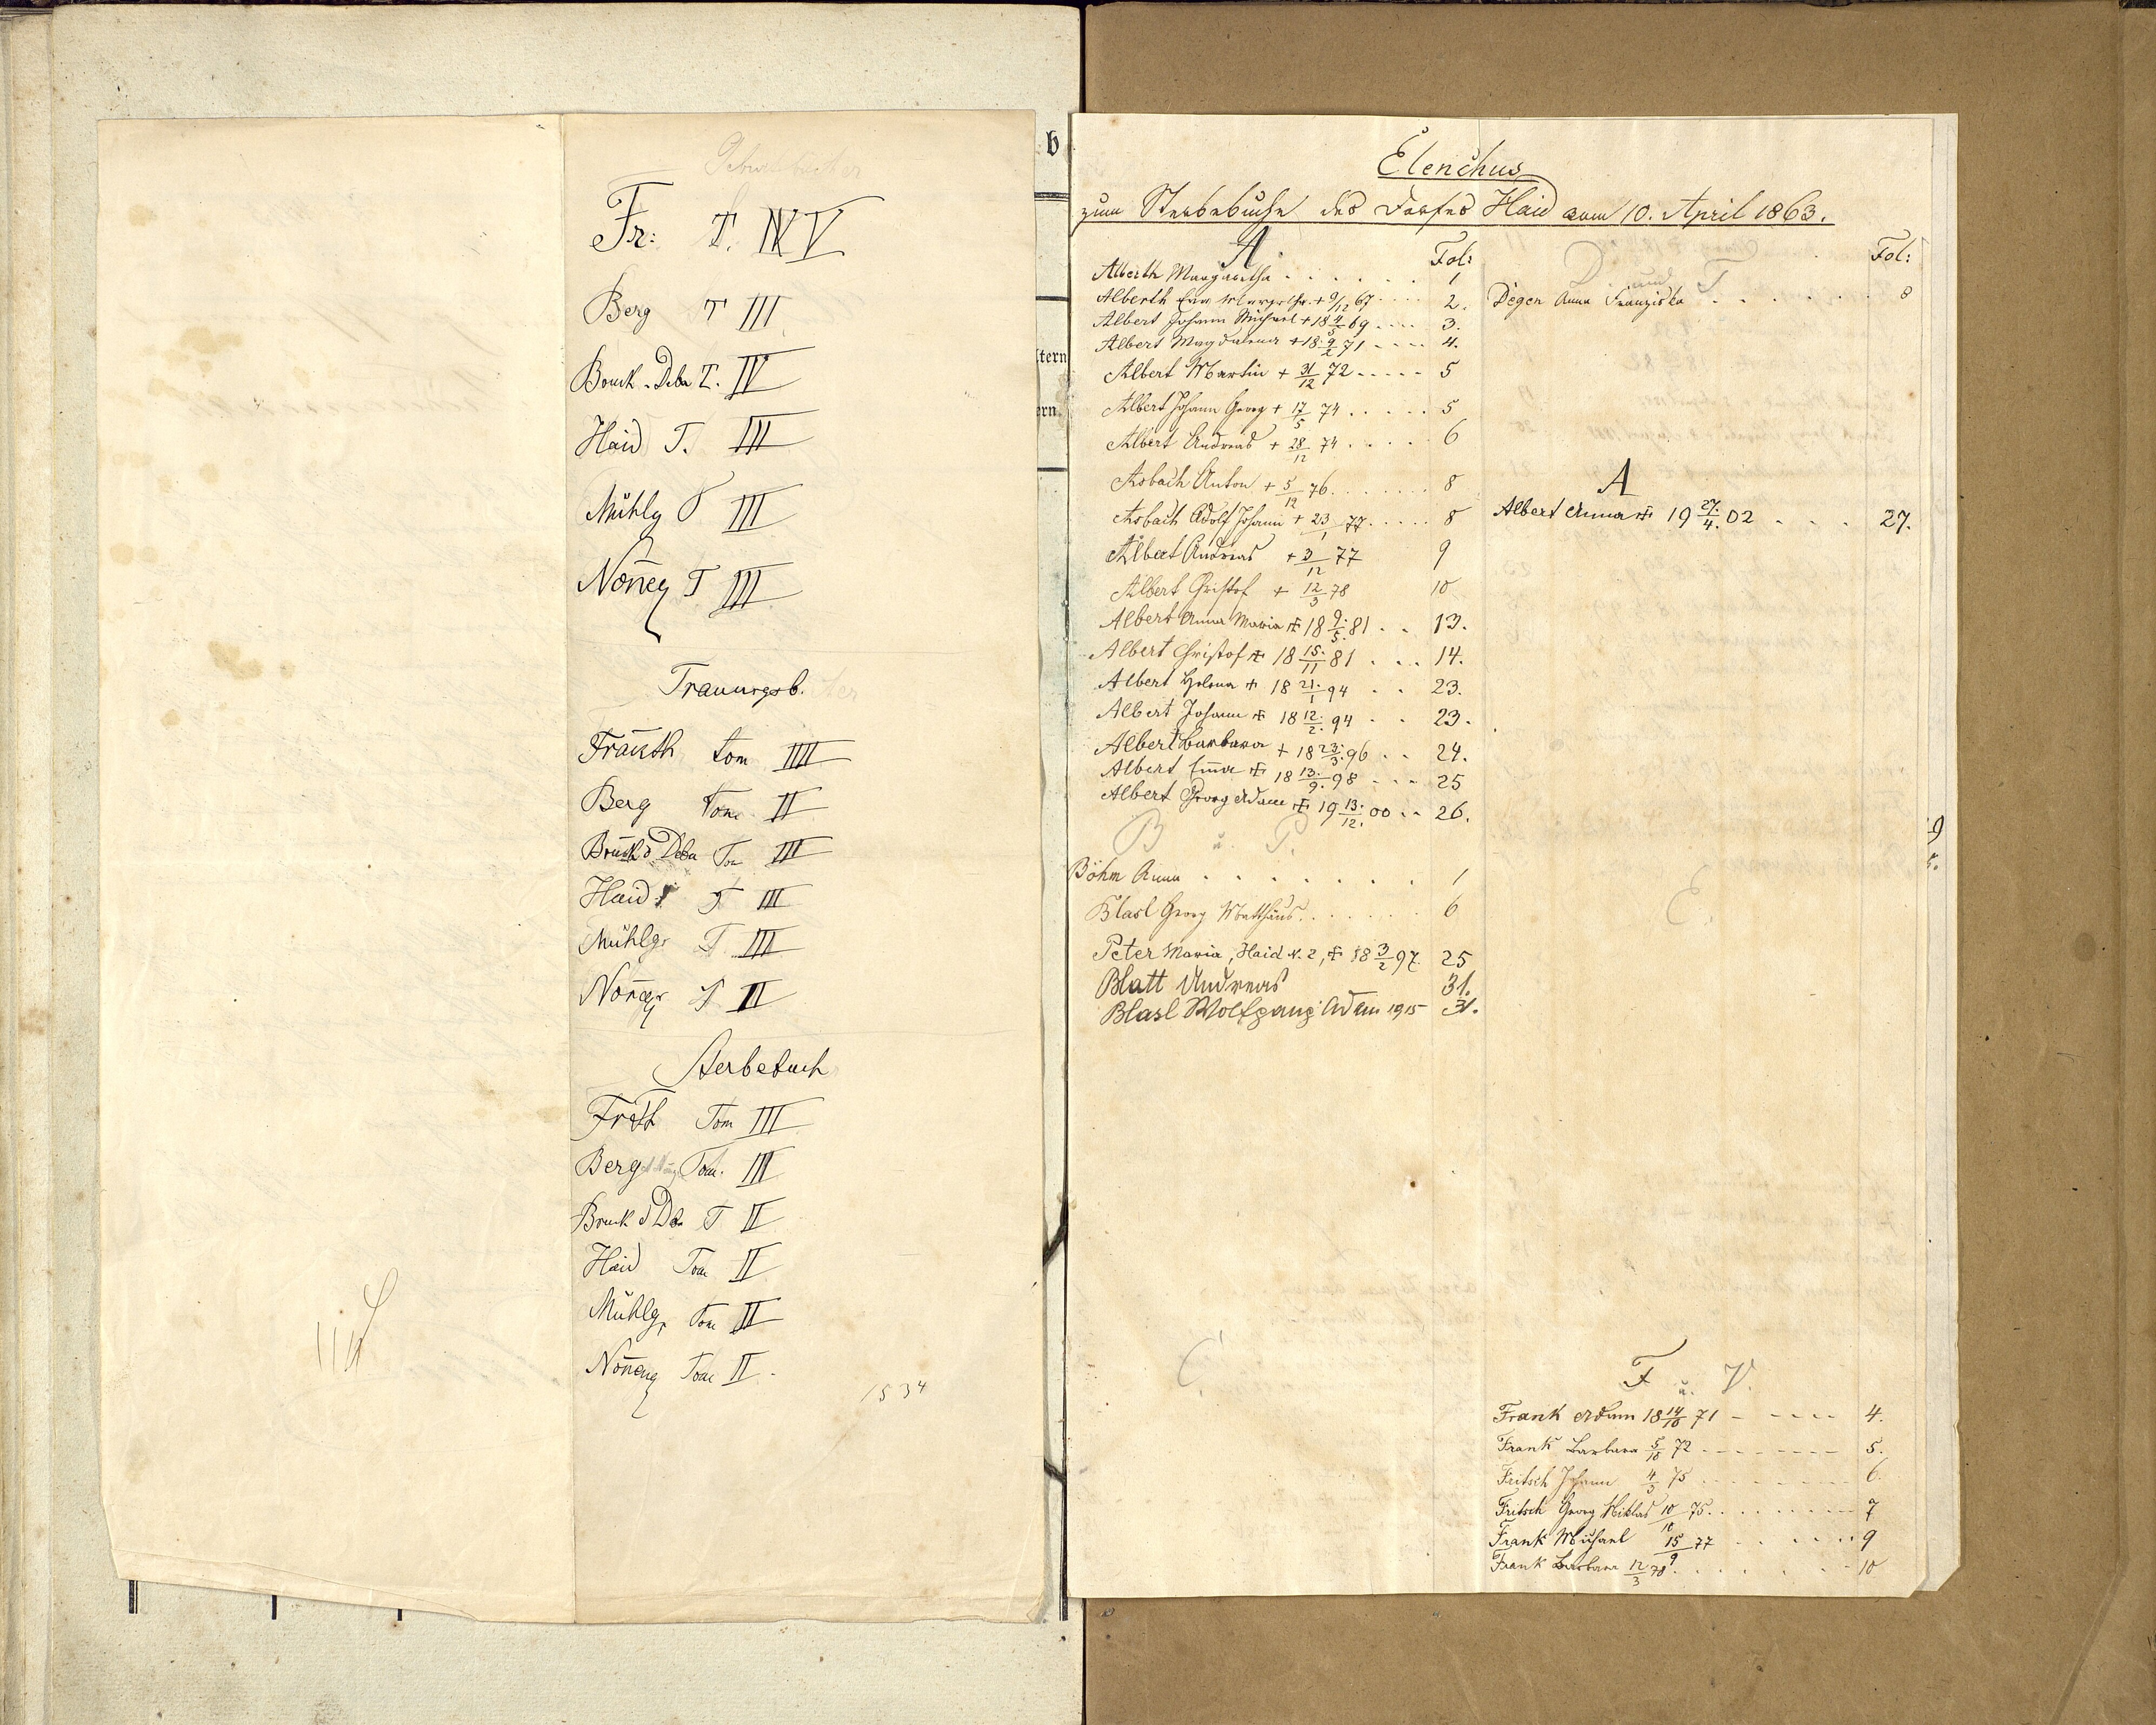 Fr: T. V
Berg T III
Bruck T. IV
Haid T. III
Mühlg T III
Nōneg T III
Trauungsb.
Frauth tom IIII
Berg Tom II
Bruck Tom III
Haid T III
Mühlg T III
Nōneg T II
Sterbebuch
Frth Tom III
Berg Tom. III
Bruck T II
Haid Tom II
Mühlg, Tom II
Nōneng Tom II.
1534
b
tern
ern
Elenchus
zum Sterbebuche des Dorfes Haid vom 10. April 1863.
A. Fol:
Alberth Margaretha 1
Alberth Eva Margar. + 9/12 67 2.
Albert Johann Michael + 18 4/5 69 3.
Albert Magdalena + 18 9/2 71 4.
Albert Martin + 31/12 72 5
Albert Johann Georg + 17/5 74 5
Albert Andreas + 28/12 74 6
Asbach Anton + 5/12 76 8
Asbach Adolf Johann + 23/1 77 8
Albert Andreas + 3/12 77 9
Albert Christof + 12/3 78 10
Albert Anna Maria + 18 9./5. 81 13.
Albert Christof + 18 15./11 81 14.
Albert Helena + 18 21./1 94 23.
Albert Johann + 18 12./2. 94 23.
Albert Barbara + 18 23./3. 96 24.
Albert Em̄a + 18 13./9. 98 25
Albert Georg Adam + 19 13./12. 00 26.
B u. P.
Böhm Anna 1
Blasl Georg Matthäus 6
Peter Maria, Haid N. 2, + 18 3/2 97. 25
Blatt Andreas 31.
Blasl Wolfgang Adam 1915 31.
C.
D und T Fol:
Degen Anna Franziska 8
A
Albert Anna + 19 27./4. 02 27.
E.
F u. V.
Frank Adam 18 14/10 71 4.
Frank Barbara 5/10 72 5.
Fritsch Johann 4/3 75 6.
Fritsch Georg Niklas 10/10 75 7
Frank Michael 15/9 77 9
Frank Barbara 12/3 78 10